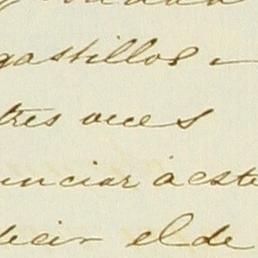 gastillos
tres veces
unciar á este
decir el de